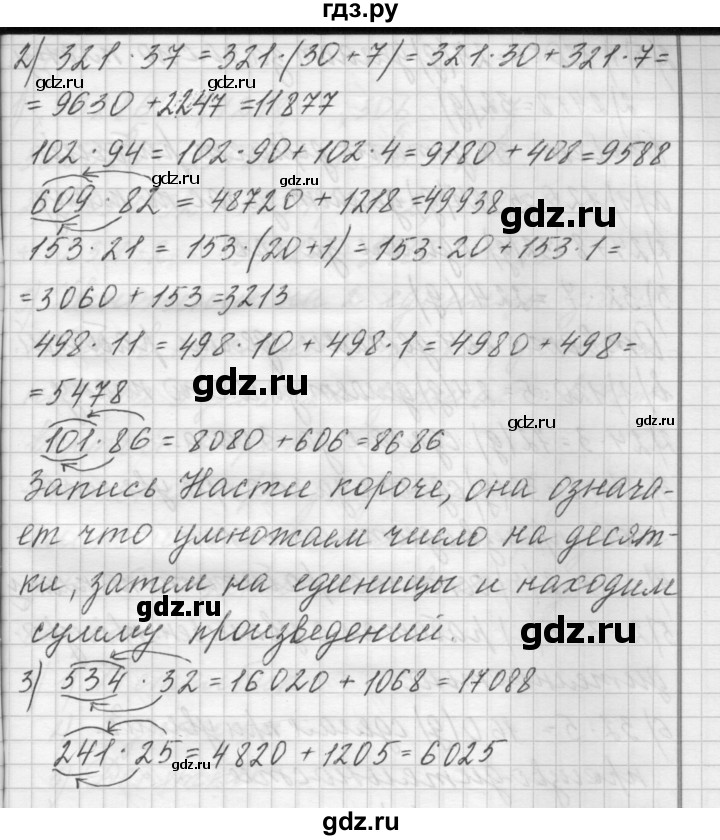 гдз.ру
2) 321 · 37 = 321·(30+7) = 321·30+321·7=
gdz.ru
gdz.ru
= 9630 +2247 =11877
102·94 = 102·90+102·4=9180+408=9588
gdz.ru
gdz.ru
gdz.ru
609·82 = 48720+1218=49938
gdz.ru
153·21 = 153·(20+1) = 153·20+153·1=
=3060+153=3213
498·11 = 498·10+498·1=4980+498=
gdz.ru
=5478
gdz.ru
gdz.ru
101·86=8080+606=8686
Запись Насти короче, она означа-
ет что умножаем число на десят-
ки, затем на единицы и находим
gdz.ru
gdz.ru
сумму произведений.
3) 534·32=16020+1068=17088
gdz.ru
gdz.ru
241·25=4820+1205=6025
gdz.ru
gdz.ru
gdz.ru